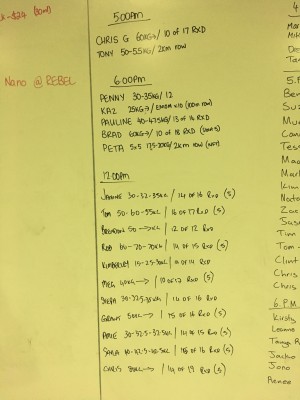 k-$24 (2am)
Nano @ REBEL
5:00am
CHRIS G 60KG→/ 10 of 17 RXD
TONY 50-55KG/ 2km row
6:00am
PENNY 30-35KG/ 12
KAZ 25KG→/ EMOM x10 (100m row)
PAULINE 40-42.5KG/ 13 of 16 RXD
BRAD 60KG→/ 10 of 18 RXD
PETA 5x5 17.5-20KG/ 2km row
12:00pm
30-32-35KG / 14 of 16 RXD (S)
TOM 50-60-55KG / 16 of 17 RXD (S)
BRENDON 50 →KG / 12 of 12 RXD
ROB 60-70-70KG / 14 of 15 RXD (S)
KIMBERLEY 15-25-30KG / 11 of 14 RXD
MEG 40KG→ / 10 of 12 RXD (S)
/ 14 of 16 RXD
GRANT 50KG→ / 15 of 16 RXD (S)
AMIE 30-32.5-32.5KG / 14 of 15 RXD (S)
SARA / 15 of 16 RXD (S)
CHRIS 80KG→ / 14 of 19 RXD (S)
4
Mar
Mik
Des
Tar
5.P
Ben
Suz
Mur
Con
Tess
Mad
Mark
Kim
Nata
Zac
Susa
Tim
Tom -
Clint
Chris
Chris
6 P.M
Kirsty
Leanne
Tanya R
Jackso
Jono
Renee